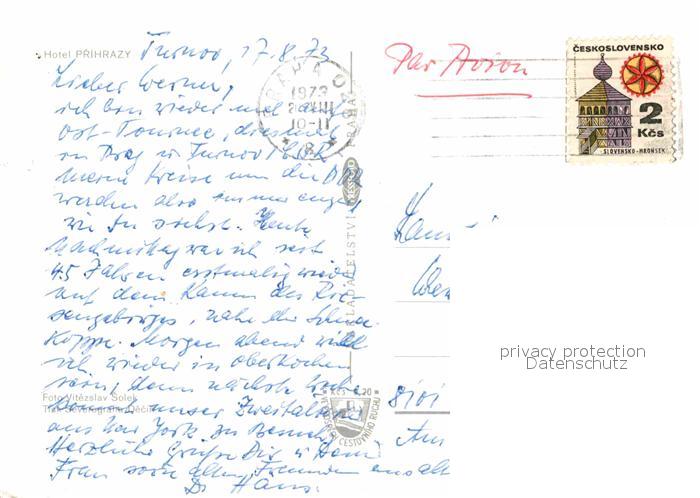 Hotel PŘÍHRAZY
Turnov, 17.8.73
Lieber Werner,
ich bin wieder mal auf
Ost-Tournee, diesmal
in Prag u. Turnov / ČSSR
Meine Kreise um die DDR
werden also immer enger,
wie Du siehst. Heute
Nachmittag war ich seit
45 Jahren erstmalig wieder
auf dem Kamm des Rie-
sengebirges, nahe der Schnee-
koppe. Morgen abend will
ich wieder in Oberkochen
sein, denn nächste Woche
kommt unser Zweitältester
aus New York zu Besuch.
Herzliche Grüße Dir u. Deiner
Frau vom alten Freunde aus alt
Dr Hans.
Foto Vítězslav Šolek
Tisk Severografia Děčín
PRAHA
1973
10-11
Par Avion
ČESKOSLOVENSKO
2
Kčs
SLOVENSKO-HRONSEK
VYDAVATELSTVÍ PRAHA
Kčs 1,20
CESTOVNÍHO RUCHU
8101
Am
privacy protection
Datenschutz